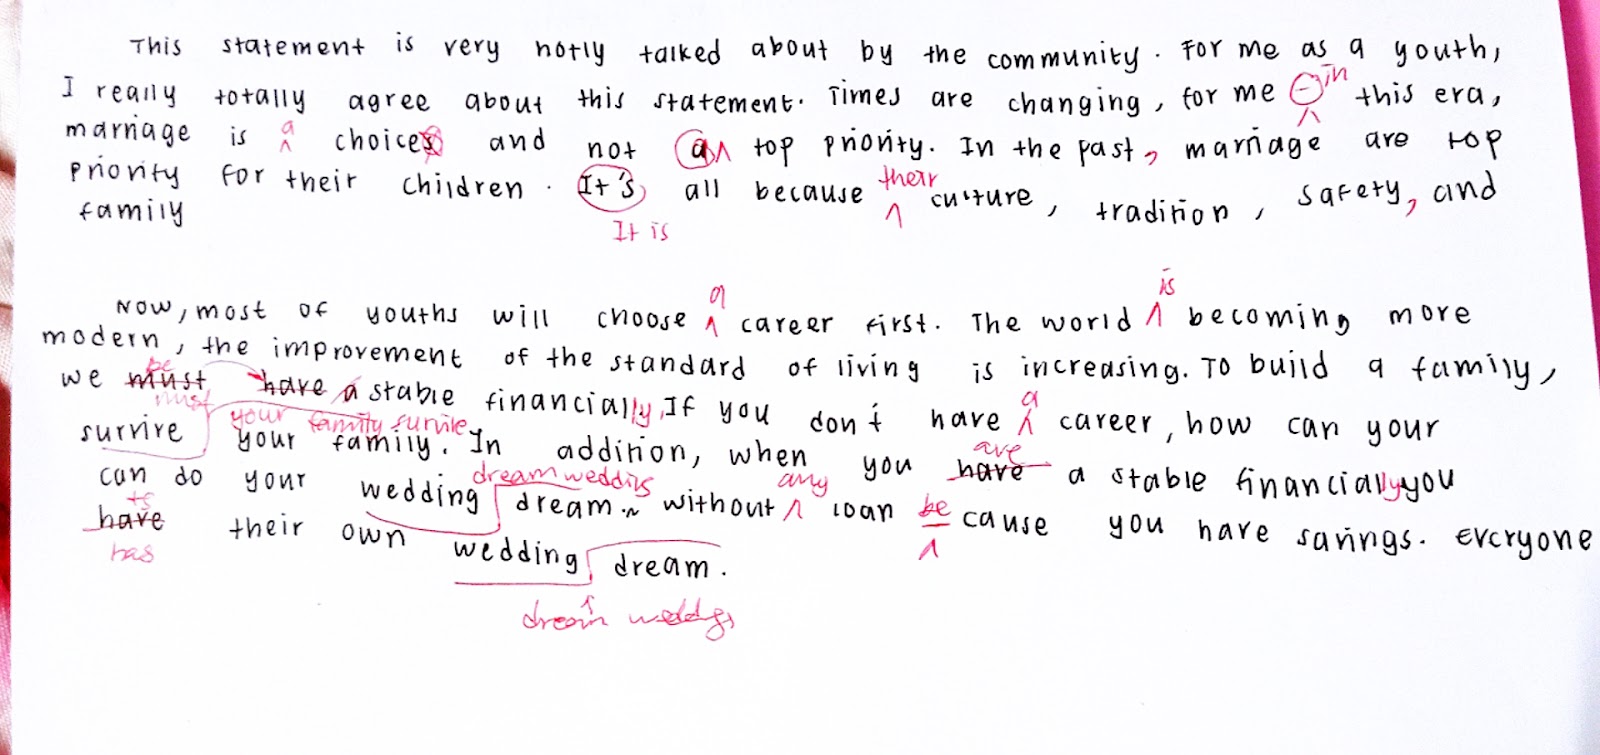 This statement is very hotly talked about by the community. For me as a youth,
I really totally agree about this statement. Times are changing, for me in this era,
marriage is a choices and not a top priority. In the past, marriage are top
priority for their children. It's all because their culture, tradition, safety, and
family
It is
a is
Now, most of youths will choose career first. The world becoming more
modern, the improvement of the standard of living is increasing. To build a family,
be
we must have a stable financially. If you don't have a career, how can your
must your family survive
survive your family. In addition, when you have a stable financially you
are
dream wedding any
can do your wedding dream without loan be cause you have savings. Everyone
have their own wedding dream.
has
dream wedding